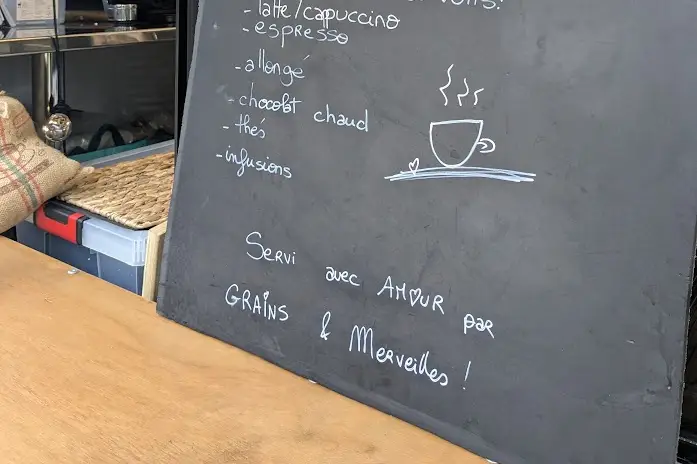 - latte/cappuccino
- espresso
- allongé
- chocolat chaud
- thés
- infusions
Servi avec AMOUR par
GRAiNS & Merveilles !